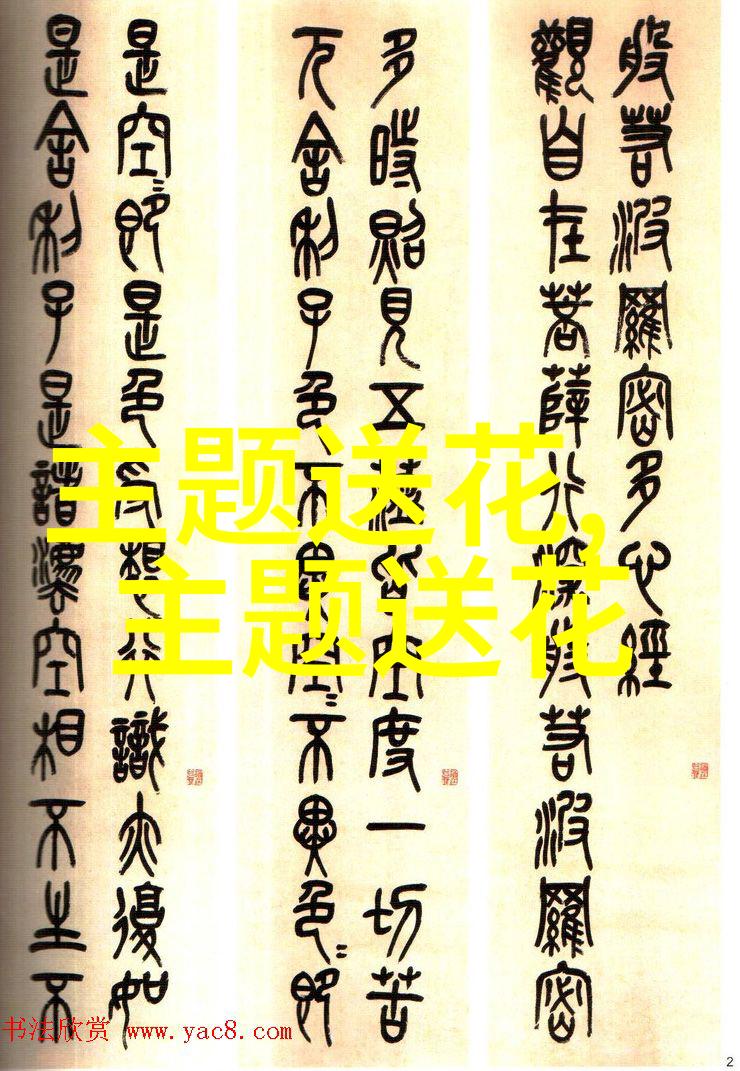 般若波羅密多心經
觀自在菩薩行深般若波羅密
多時照見五蘊皆空度一切苦
厄舍利子色不異空〻不異色〻即
是空〻即是色受想行識亦復如
是舍利子是諸灋空相不生不
主题送花,
主题送花
书法欣赏 www.yac8.com
2